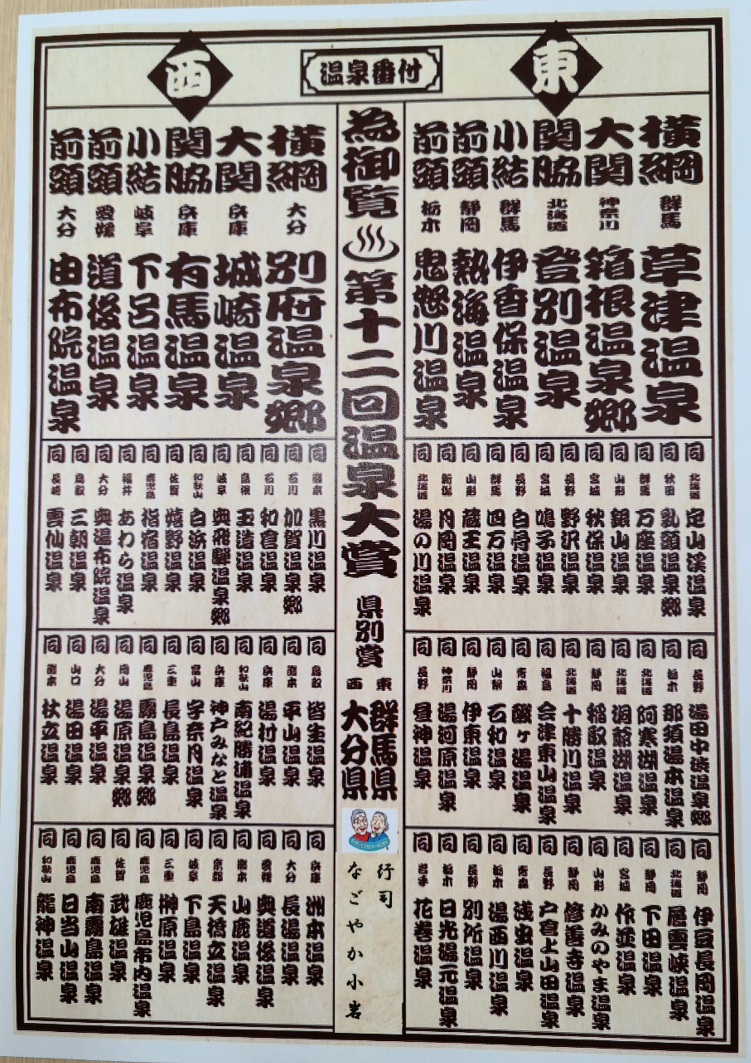 温泉番付
東
横綱 群馬 草津温泉
大関 神奈川 箱根温泉郷
関脇 北海道 登別温泉
小結 群馬 伊香保温泉
前頭 静岡 熱海温泉
前頭 栃木 鬼怒川温泉
同 北海道 定山渓温泉
同 秋田 乳頭温泉郷
同 群馬 万座温泉
同 山形 銀山温泉
同 宮城 秋保温泉
同 長野 野沢温泉
同 宮城 鳴子温泉
同 長野 白骨温泉
同 群馬 四万温泉
同 山形 蔵王温泉
同 新潟 月岡温泉
同 北海道 湯の川温泉
同 長野 湯田中渋温泉郷
同 栃木 那須湯本温泉
同 北海道 阿寒湖温泉
同 北海道 洞爺湖温泉
同 静岡 稲取温泉
同 北海道 十勝川温泉
同 福島 会津東山温泉
同 青森 酸ヶ湯温泉
同 山梨 石和温泉
同 静岡 伊東温泉
同 神奈川 湯河原温泉
同 長野 昼神温泉
同 静岡 伊豆長岡温泉
同 北海道 層雲峡温泉
同 静岡 下田温泉
同 宮城 作並温泉
同 山形 かみのやま温泉
同 静岡 修善寺温泉
同 長野 戸倉上山田温泉
同 青森 浅虫温泉
同 栃木 湯西川温泉
同 長野 別所温泉
同 栃木 日光湯元温泉
同 岩手 花巻温泉
為御覧♨第十二回温泉大賞
県別賞
東 群馬県
西 大分県
行司
なごやか小岩
西
横綱 大分 別府温泉郷
大関 兵庫 城崎温泉
関脇 兵庫 有馬温泉
小結 岐阜 下呂温泉
前頭 愛媛 道後温泉
前頭 大分 由布院温泉
同 熊本 黒川温泉
同 石川 加賀温泉郷
同 石川 和倉温泉
同 島根 玉造温泉
同 岐阜 奥飛騨温泉郷
同 和歌山 白浜温泉
同 佐賀 嬉野温泉
同 鹿児島 指宿温泉
同 福井 あわら温泉
同 大分 奥湯布院温泉
同 鳥取 三朝温泉
同 長崎 雲仙温泉
同 鳥取 皆生温泉
同 熊本 平山温泉
同 兵庫 湯村温泉
同 和歌山 南紀勝浦温泉
同 兵庫 神戸みなと温泉
同 富山 宇奈月温泉
同 三重 長島温泉
同 鹿児島 霧島温泉郷
同 岡山 湯原温泉郷
同 大分 湯平温泉
同 山口 湯田温泉
同 熊本 杖立温泉
同 兵庫 洲本温泉
同 大分 長湯温泉
同 愛媛 奥道後温泉
同 熊本 山鹿温泉
同 京都 天橋立温泉
同 岐阜 下島温泉
同 三重 榊原温泉
同 鹿児島 鹿児島市内温泉
同 佐賀 武雄温泉
同 鹿児島 南霧島温泉
同 鹿児島 日当山温泉
同 和歌山 龍神温泉